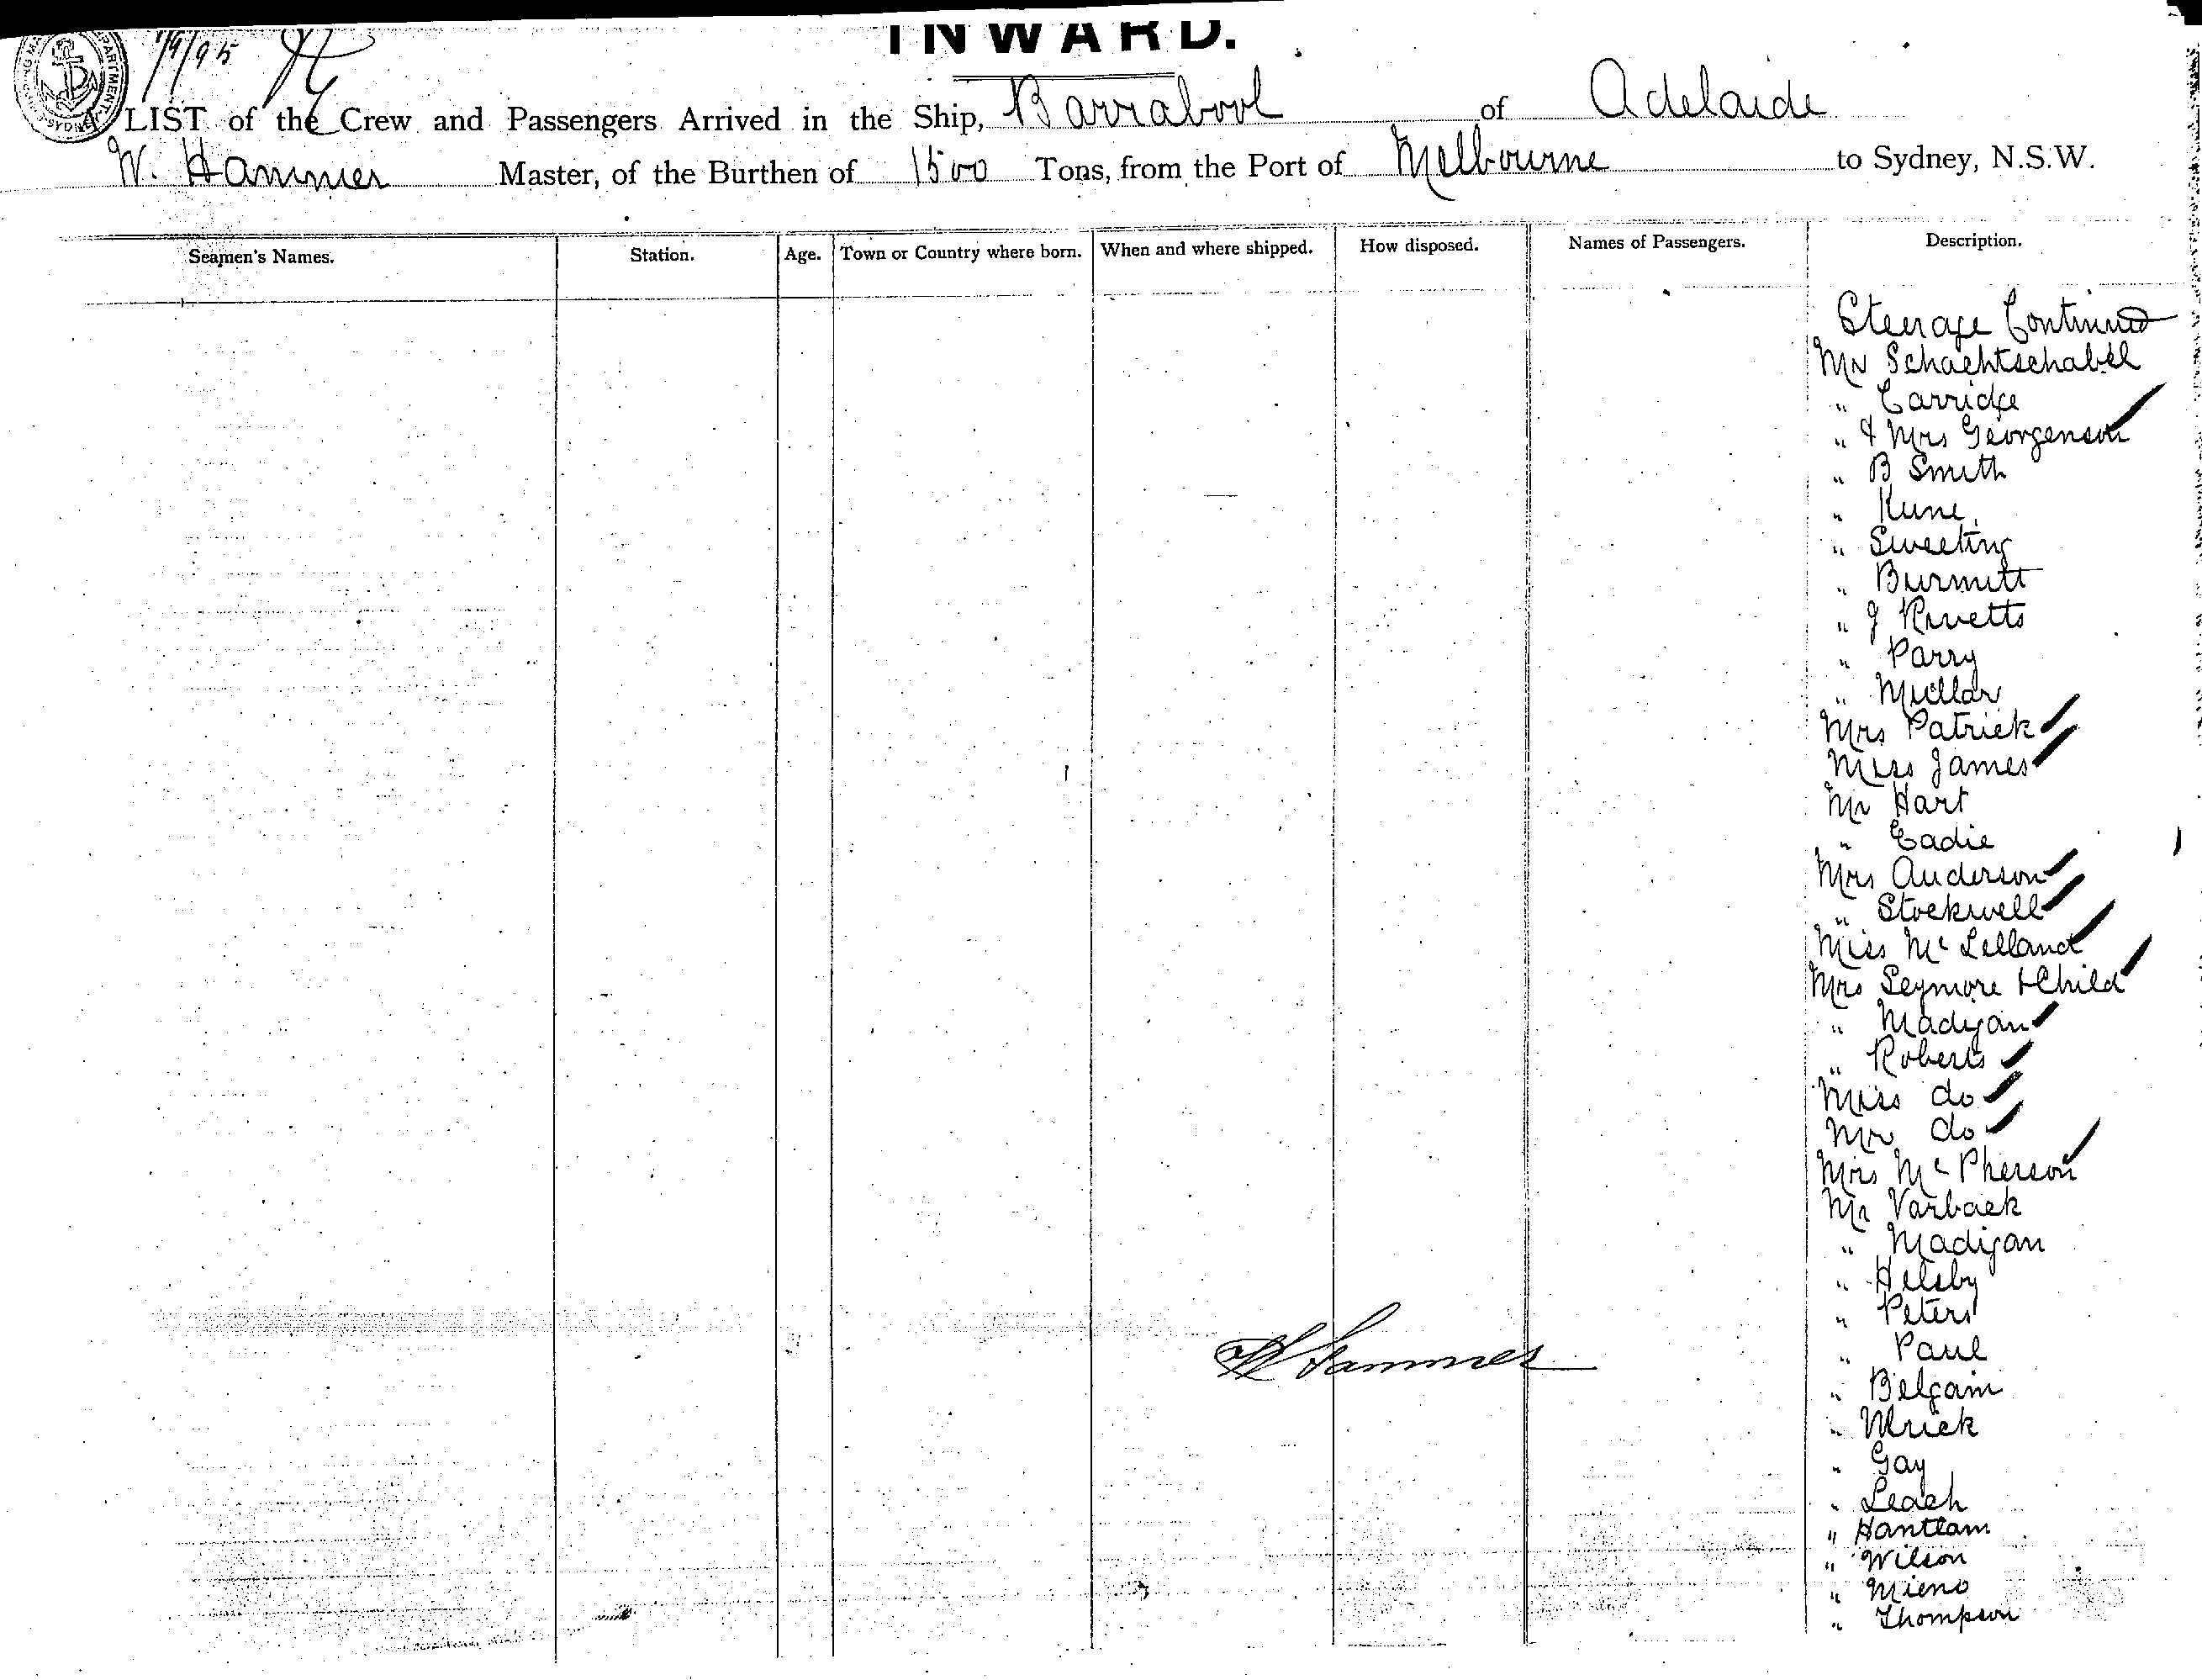 INWARD.
1/9/95
A LIST of the Crew and Passengers Arrived in the Ship, Barrabool of Adelaide
W. Hammer Master, of the Burthen of 1500 Tons, from the Port of Melbourne to Sydney, N.S.W.
Seamen's Names. Station. Age. Town or Country where born. When and where shipped. How disposed. Names of Passengers. Description.
Steerage Continued
Mr Schachtschabel
" Carridge
" & Mrs Georgenson
" B Smith
" Kune
" Sweeting
" Burmitt
" J Rivetts
" Parry
" Mullar
Mrs Patrick
Miss James
Mr Hart
" Eadie
Mrs Anderson
" Stockwell
Miss Mc Lelland
Mrs Seymore & Child
" Madigan
" Roberts
Miss do
Mr do
Mrs Mc Pherson
Mr Varback
" Madigan
" Helsby
" Peters
" Paul
W Hammer
" Belgain
" Ulrick
" Gay
" Leach
" Hantlam
" Wilson
" Mieno
" Thompson